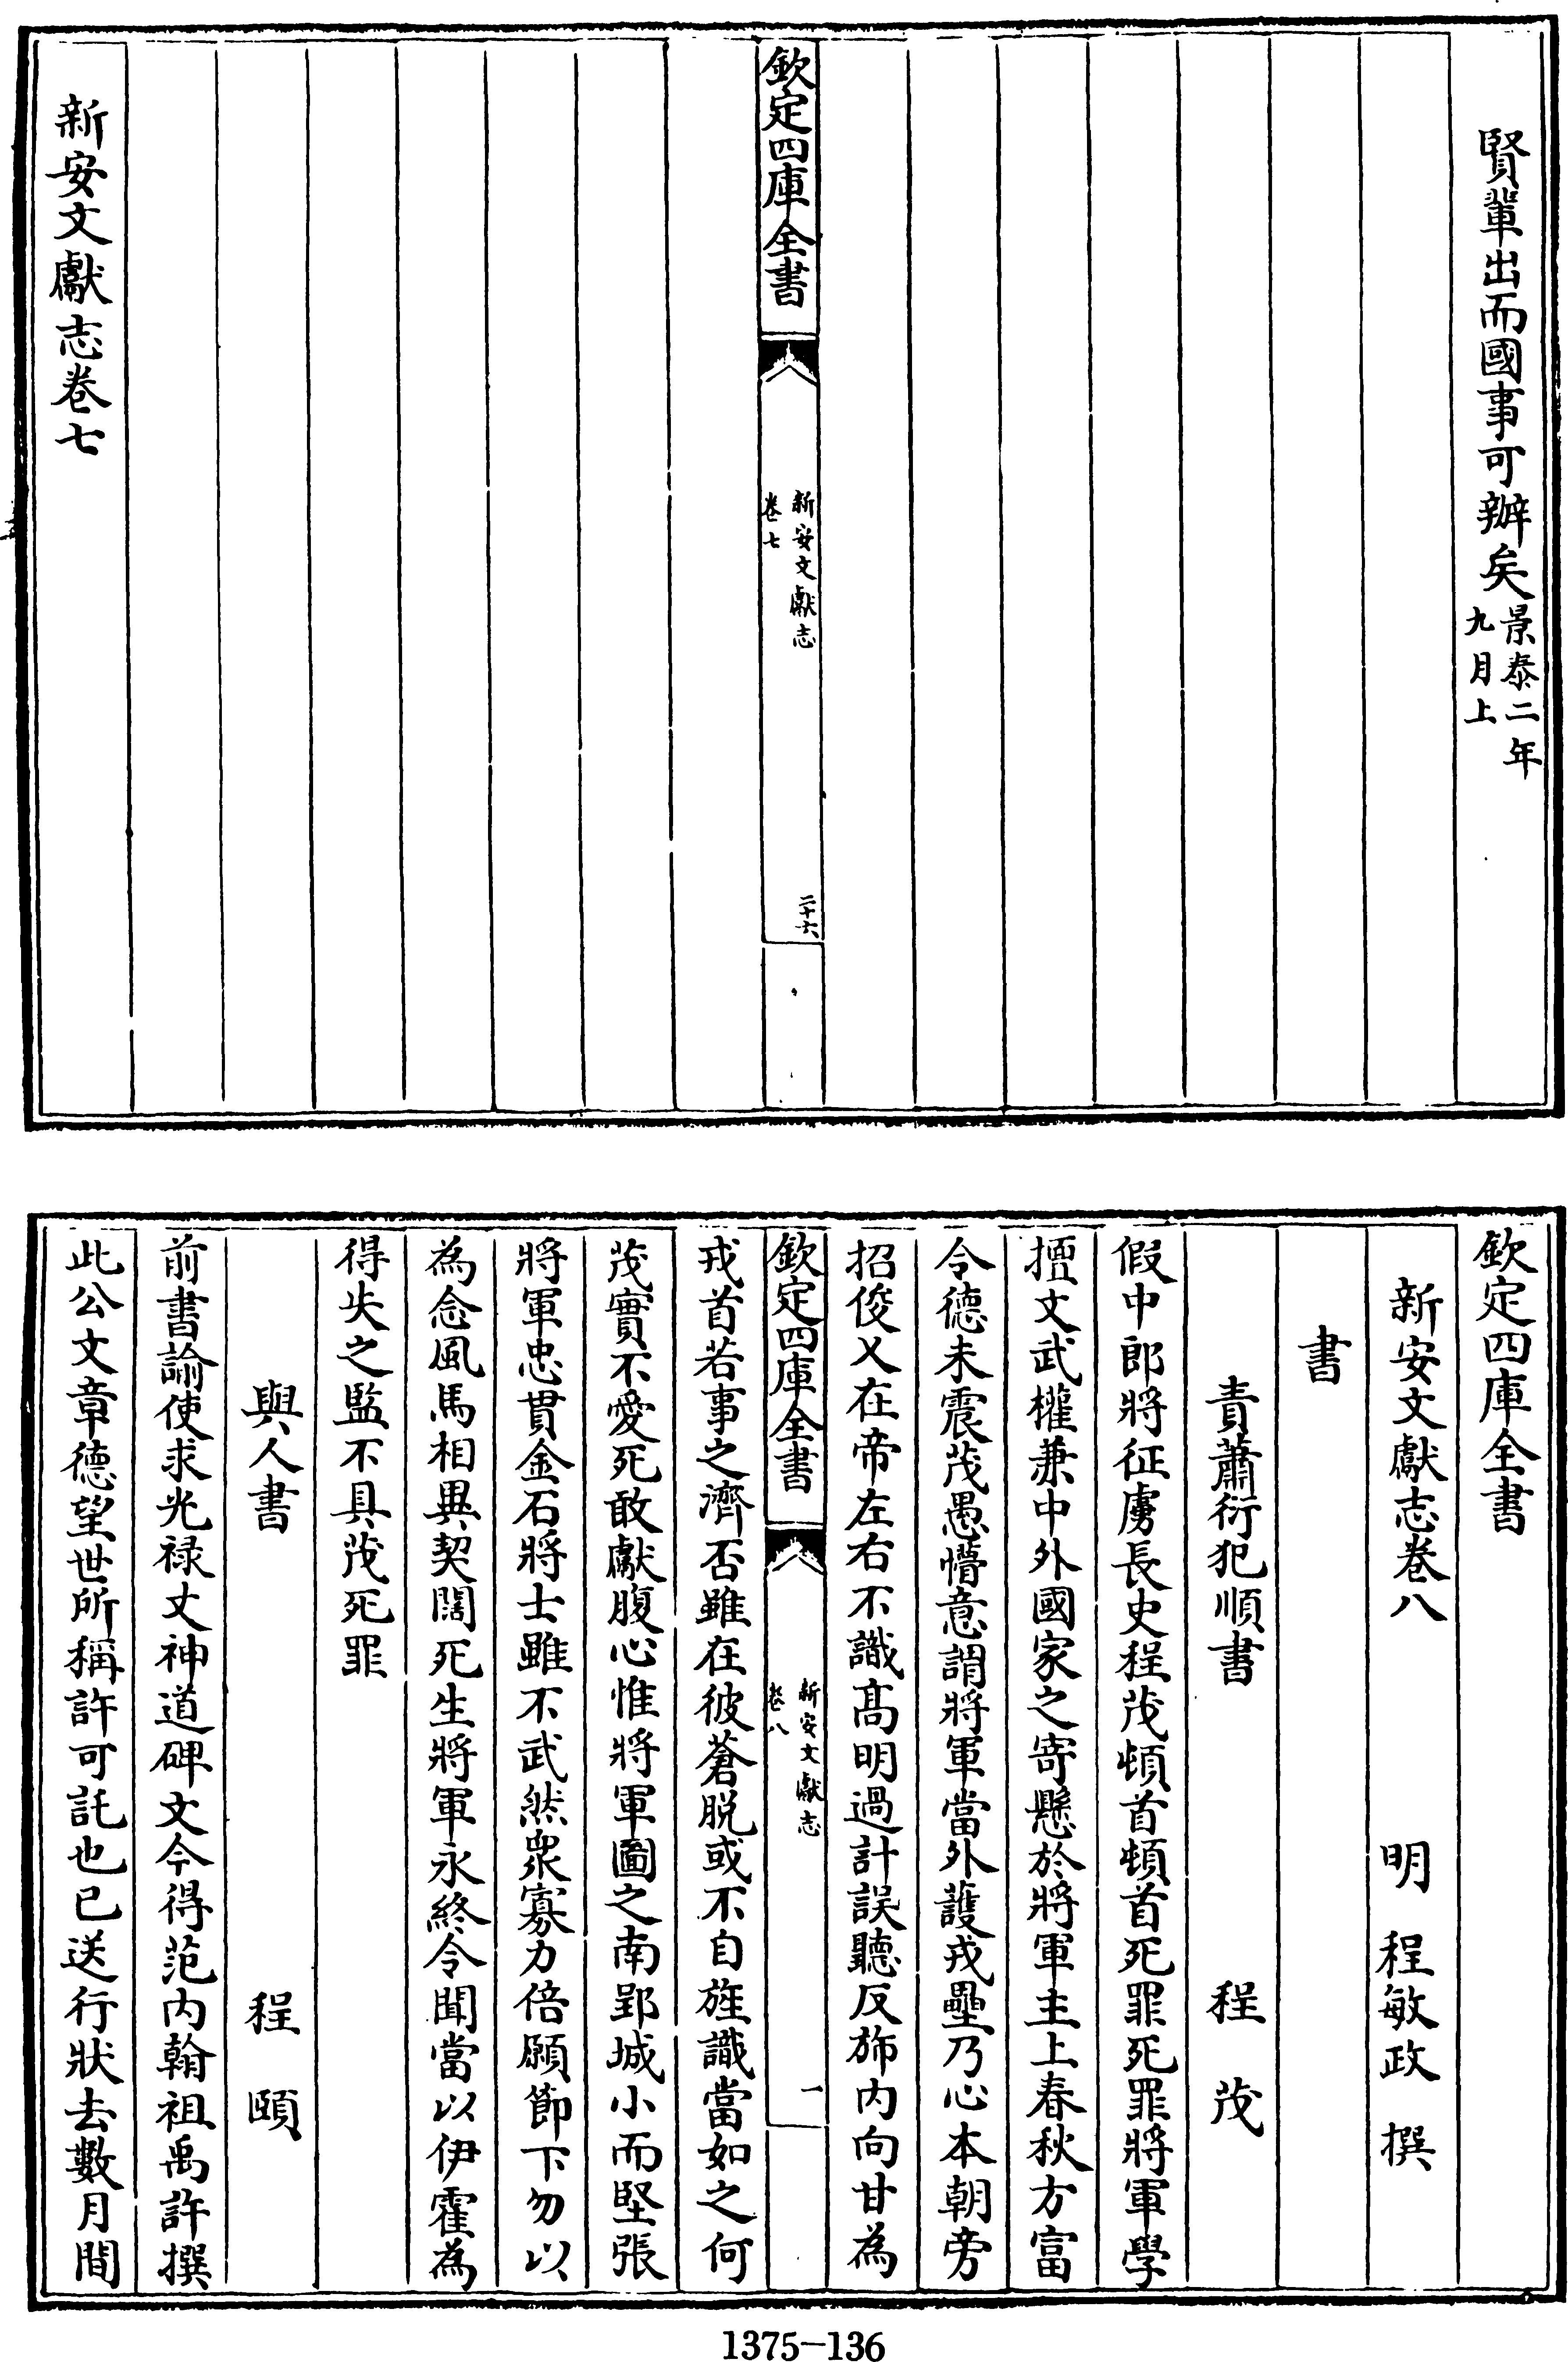 賢軰出而國事可辦矣景泰二年
九月上
欽定四庫全書
新安文獻志
卷七
二十六
新安文獻志卷七
欽定四庫全書
新安文獻志卷八
明 程敏政 撰
書
責蕭衍犯順書
程 茂
假中郎將征虜長史程茂頓首頓首死罪死罪將軍學
擅文武權兼中外國家之寄懸於將軍主上春秋方富
令德未震茂愚懵意謂將軍當外護戎壘乃心本朝旁
招俊乂在帝左右不識髙明過計誤聽反斾内向甘為
欽定四庫全書
新安文獻志
卷八
一
戎首若事之濟否雖在彼蒼脱或不自旌識當如之何
茂實不愛死敢獻腹心惟將軍圖之南郢城小而堅張
將軍忠貫金石將士雖不武然衆寡力倍願節下勿以
為念風馬相異契闊死生將軍永終令聞當以伊霍為
得失之監不具茂死罪
與人書
程 頤
前書諭使求光禄丈神道碑文今得范内翰祖禹許撰
此公文章德望世所稱許可託也已送行狀去數月間
1375-136